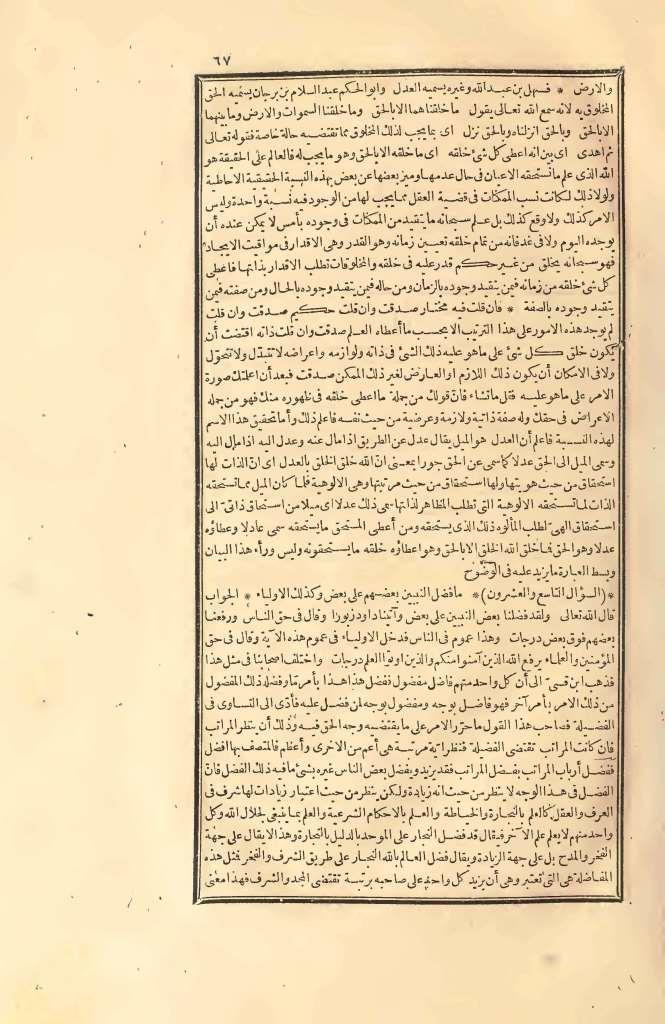 ٦٧
والارض * فسهل بن عبد الله وغيره يسميه العدل وابو الحكم عبد السلام بن برجان يسميه الحق
المخلوق به لانه سمع الله تعالى يقول ما خلقناهما الا بالحق وما خلقنا السموات والارض وما بينهما
الا بالحق وبالحق انزلناه وبالحق نزل اى بما يجب لذلك المخلوق مما تقتضيه حالة خاصة فقوله تعالى
ثم هدى اى بين انه اعطى كل شئ خلقه اى ما خلقه الا بالحق وهو ما يجب له فالعالم على الحقيقة هو
الله الذى علم ما تستحقه الاعيان فى حال عدمها وميز بعضها عن بعض بهذه النسبة الحقيقية الاحاطية
ولولا ذلك لكانت نسب الممكنات فى قضية العقل مما يجب لها من الوجود فيه نسبة واحدة وليس
الامر كذلك ولا وقع كذلك بل علم سبحانه ما يتقيد من الممكنات فى وجوده بأمس لا يمكن عنده أن
يوجده اليوم ولا فى غد فانه من تمام خلقه تعيين زمانه وهو القدر وهى الاقدار فى مواقيت الايجاد
فهو سبحانه يخلق من غير حكم قدر عليه فى خلقه والمخلوقات تطلب الاقدار بذاتها فاعطى
كل شئ خلقه من زمانه فيمن يتقيد وجوده بالزمان ومن حاله فيمن يتقيد وجوده بالحال ومن صفته فيمن
يتقيد وجوده بالصفة * فان قلت فيه مختار صدقت وان قلت حكيم صدقت وان قلت
لم يوجد هذه الامور على هذا الترتيب الا بحسب ما أعطاه العلم صدقت وان قلت ذاته اقتضت أن
يكون خلق كل شئ على ما هو عليه ذلك الشئ فى ذاته ولوازمه واعراضه لا تتبدل ولا تتحول
ولا فى الامكان أن يكون ذلك اللازم او العارض لغير ذلك الممكن صدقت فبعد أن اعلمتك صورة
الامر على ما هو عليه فقل ما تشاء فانّ قولك من جملة ما اعطى خلقه فى ظهوره منك فهو من جملة
الاعراض فى حقك وله صفة ذاتية ولازمة وعرضية من حيث نفسه فاعلم ذلك وأما تحقيق هذا الاسم
لهذه النسبة فاعلم أن العدل هو الميل يقال عدل عن الطريق اذا مال عنه وعدل اليه اذا مال اليه
وسمى الميل الى الحق عدلا كما سمى عن الحق جورا بمعنى انّ الله خلق الخلق بالعدل اى انّ الذات لها
استحقاق من حيث هويتها ولها استحقاق من حيث مرتبتها وهى الالوهية فلما كان الميل مما تستحقه
الذات لما تستحقه الالوهية التى تطلب المظاهر لذاتها سمى ذلك عدلا اى ميلا من استحقاق ذاتىّ الى
استحقاق الهىّ لطلب المألوه ذلك الذى يستحقه ومن أعطى المستحق ما يستحقه سمى عادلا وعطاؤه
عدلا وهو الحق فما خلق الله الخلق الا بالحق وهو اعطاؤه خلقه ما يستحقونه وليس وراء هذا البيان
وبسط العبارة ما يزيد عليه فى الوضوح
* (السؤال التاسع والعشرون) * ما فضل النبيين بعضهم على بعض وكذلك الاولياء * الجواب
قال الله تعالى ولقد فضلنا بعض النبيين على بعض وآتينا داود زبورا وقال فى حق الناس ورفعنا
بعضهم فوق بعض درجات وهذا عموم فى الناس فدخل الاولياء فى عموم هذه الآية وقال فى حق
المؤمنين والعلماء يرفع الله الذين آمنوا منكم والذين اوتوا العلم درجات واختلف اصحابنا فى مثل هذا
فذهب ابن قسىّ الى أن كل واحد منهم فاضل مفضول ففضل هذا هذا بأمر ما وفضله ذلك المفضول
من ذلك الامر بأمر آخر فهو فاضل بوجه ومفضول بوجه لمن فضل عليه فأدّى الى التساوى فى
الفضيلة فصاحب هذا القول ما حرّر الامر على ما يقتضيه وجه الحق فيه وذلك أن ينظر المراتب
فان كانت المراتب تقتضى الفضيلة فتنظر اية مرتبة هى أعم من الاخرى وأعظم فالمتصف بها افضل
ففضل أرباب المراتب بفضل المراتب فقد يزيد ويفضل بعض الناس غيره بشئ ما فيه ذلك الفضل فانّ
الفضل فى هذا الوجه لا ينظر من حيث انه زيادة ولكن ينظر من حيث اعتبار زيادات لها شرف فى
العرف والعقل كالعلم بالنجارة والخياطة والعلم بالاحكام الشرعية والعلم بما ينبغى لجلال الله وكل
واحد منهم لا يعلم علم الآخر فيقال قد فضل النجار على الموحد بالدليل بالنجارة وهذا لا يقال على جهة
الفخر والمدح بل على جهة الزيادة ويقال فضل العالم بالله النجار على طريق الشرف والفخر فمثل هذه
المفاضلة هى التى تعتبر وهى أن يزيد كل واحد على صاحبه برتبة تقتضى المجد والشرف فهذا معنى